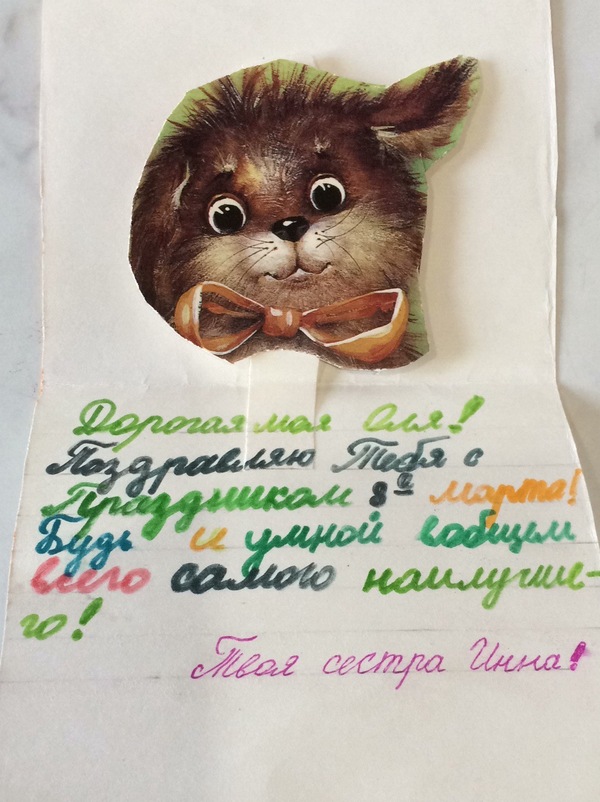 Дорогая моя Оля!
Поздравляю Тебя с
Праздником 8ое марта!
Будь и умной вобщем
всего самого наилучше-
го!
Твоя сестра Инна!